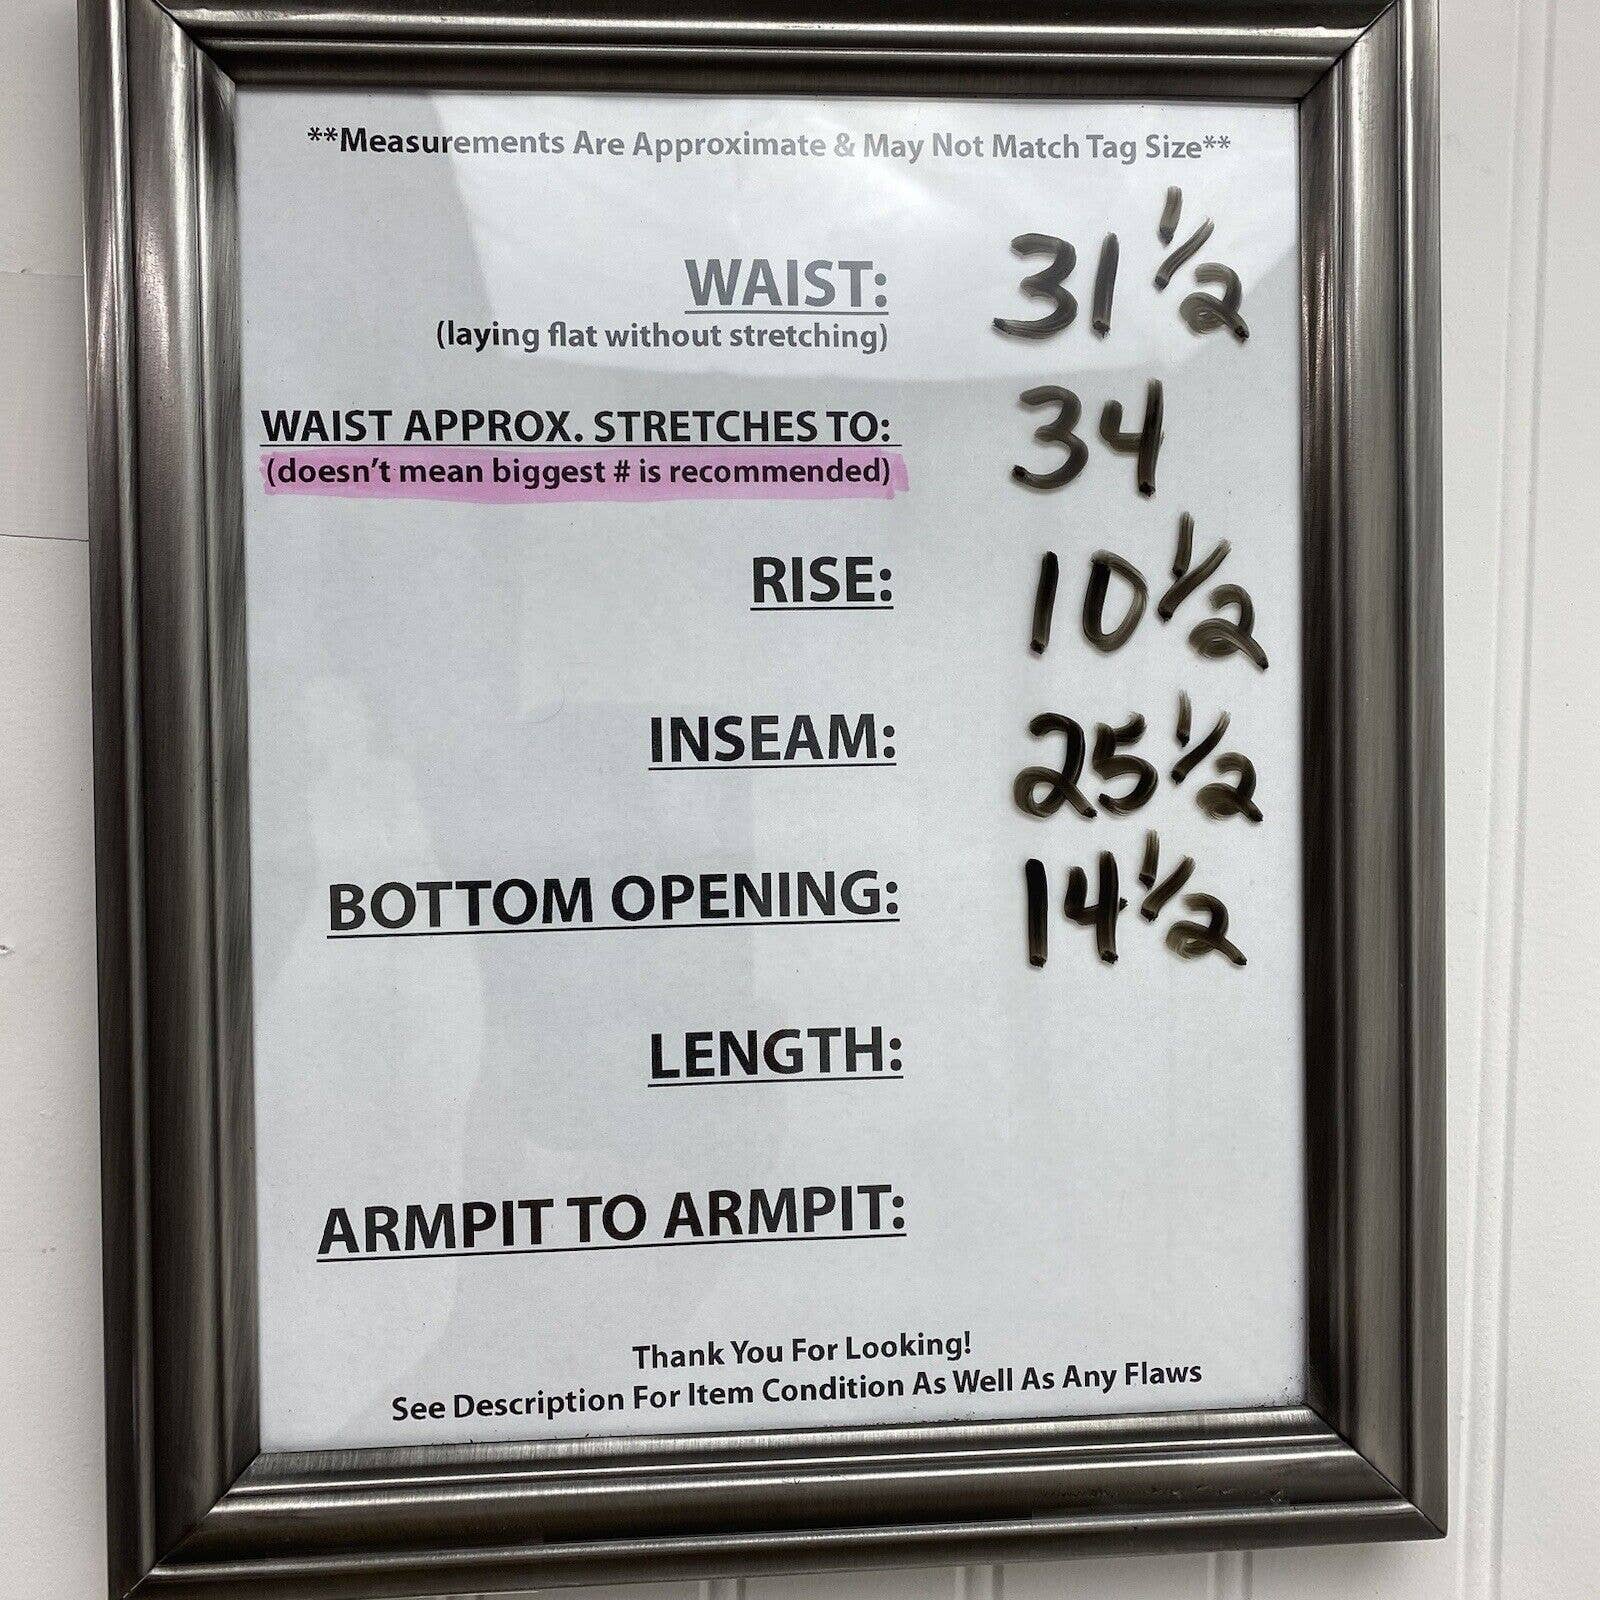 **Measurements Are Approximate & May Not Match Tag Size**
WAIST: 31 1/2
(laying flat without stretching)
WAIST APPROX. STRETCHES TO: 34
(doesn't mean biggest # is recommended)
RISE: 10 1/2
INSEAM: 25 1/2
BOTTOM OPENING: 14 1/2
LENGTH:
ARMPIT TO ARMPIT:
Thank You For Looking!
See Description For Item Condition As Well As Any Flaws